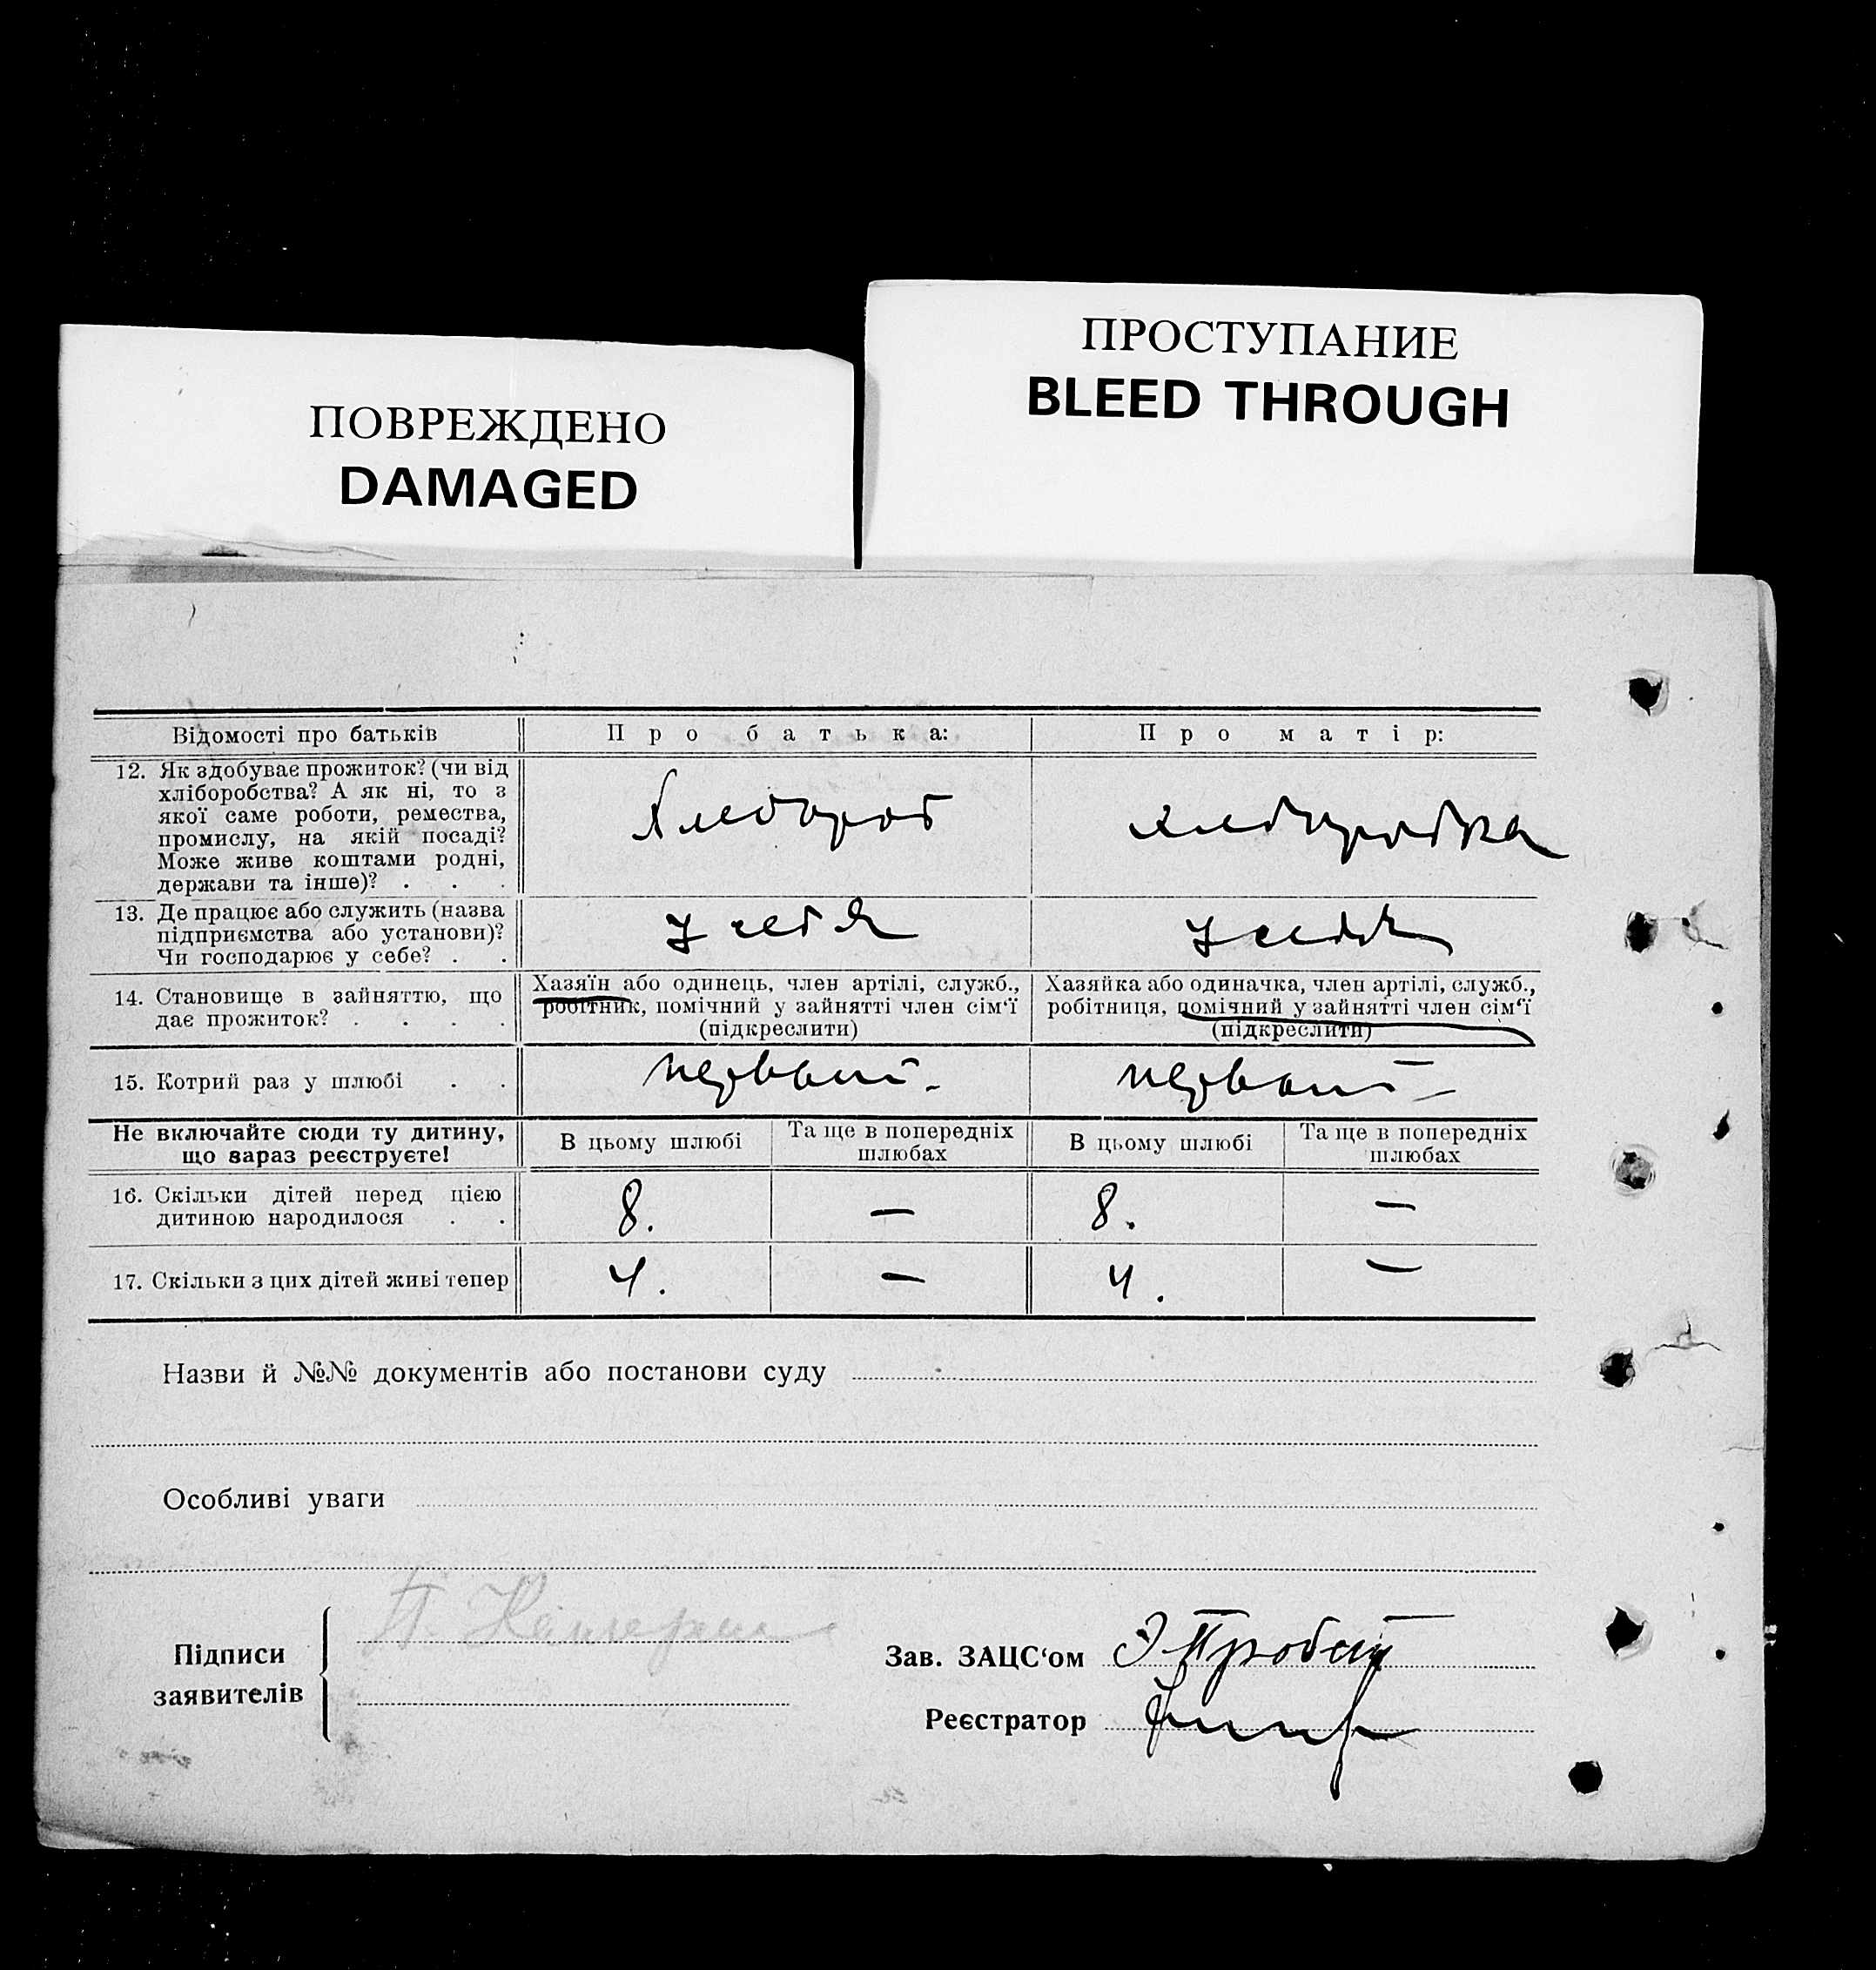 ПОВРЕЖДЕНО
DAMAGED
ПРОСТУПАНИЕ
BLEED THROUGH
Відомості про батьків
Про батька:
Про матір:
12. Як здобуває прожиток? (чи від
хліборобства? А як ні, то з
якої саме роботи, ремества,
промислу, на якій посаді?
Може живе коштами родні,
держави та інше)? . . .
Хлебороб
хлеборобка
13. Де працює або служить (назва
підприємства або установи)?
Чи господарює у себе? . .
У себя
У себя
14. Становище в зайняттю, що
дає прожиток? . . . .
Хазяїн або одинець, член артілі, служб.,
робітник, помічний у зайнятті член сім‘ї
(підкреслити)
Хазяйка або одиначка, член артілі, служб.,
робітниця, помічний у зайнятті член сім‘ї
(підкреслити)
15. Котрий раз у шлюбі . .
первый -
первый -
Не включайте сюди ту дитину,
що зараз реєструєте!
В цьому шлюбі
Та ще в попередніх
шлюбах
В цьому шлюбі
Та ще в попередніх
шлюбах
16. Скільки дітей перед цією
дитиною народилося . .
8. — 8. —
17. Скільки з цих дітей живі тепер
4. — 4. —
Назви й №№ документів або постанови суду
Особливі уваги
Підписи
заявителів
Зав. ЗАЦС‘ом
Реєстратор